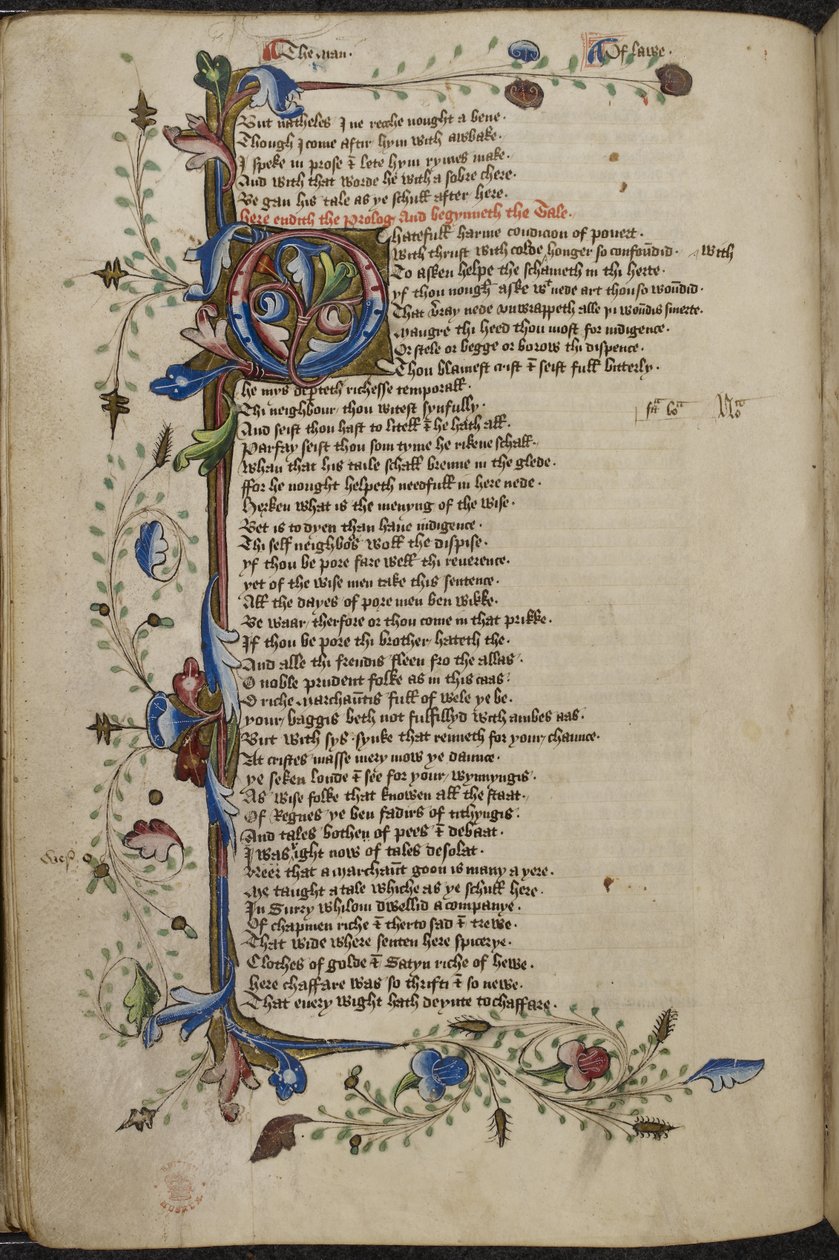 The man · Of lawe ·
But natheles I ne recche nought a bene ·
Though I come aftir hym with awbake ·
I speke in prose & lete hym rymes make ·
And with that worde he with a sobre chere ·
Be gan his tale as ye schull after here ·
here endith the Prolog And begynneth the Tale ·
O hatefull harme condicion of pouert ·
With thrust with colde honger so confoundid · with
To asken helpe the schameth in thi herte ·
yf thou nough aske wt nede art thou so woundid ·
That veray nede vnwrappeth alle þi woundis smerte ·
Maugre thi heed thou most for indigence ·
Or stele or begge or borow thi dispence ·
Thou blamest crist & seist full bitterly ·
he mys departeth richesse temporall ·
Thi neighbour thou witest synfully ·
And seist thou hast to litell & he hath all ·
Parfay seist thou som tyme he rikene schall ·
Whan that his taile schall brenne in the glede ·
ffor he nought helpeth needfull in here nede ·
Herken what is the menyng of the wise ·
Bet is to dyen than haue indigence ·
Thi self neighbor woll the dispise ·
yf thou be pore fare well thi reuerence ·
yet of the wise men take this sentence ·
All the dayes of pore men ben wikke ·
Be waar therfore or thou come in that prikke ·
If thou be pore thi brother hateth the ·
And alle thi frendis fleen fro the allas ·
O noble prudent folke as in this caas ·
O riche marchauntis full of wele ye be ·
your baggis beth not fulfillyd with ambes aas ·
But with sys synke that renneth for your chaunce ·
At cristes masse mery mow ye daunce ·
ye seken londe & see for your wynnyngis ·
As wise folke that knowen all the staat ·
Of Regnes ye ben fadirs of tithyngis ·
And tales bothen of pees & debaat ·
I was right now of tales desolat ·
Neer that a marchaunt goon is many a yere ·
Me taught a tale whiche as ye schull here ·
In Surry whilom dwellid a companye ·
Of chapmen riche & therto sad & trewe ·
That wide where senten here spicerye ·
Clothes of golde & Satyn riche of hewe ·
here chaffare was so thrifti & so newe ·
That euery wight hath deynte to chaffare ·
BRITISH MUSEUM